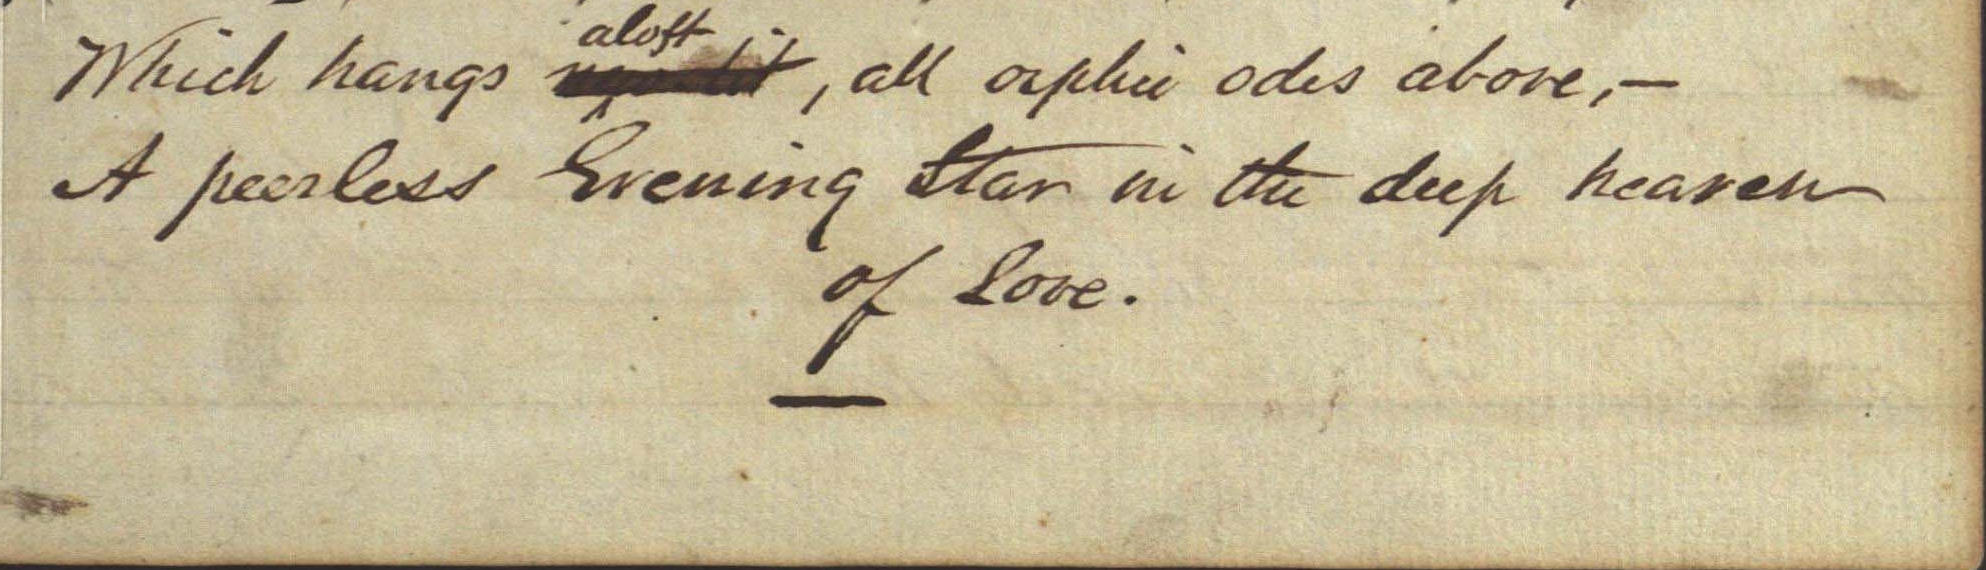 aloft
Which hangs , all orphic odes above,—
A peerless Evening Star in the deep heaven
of Love.